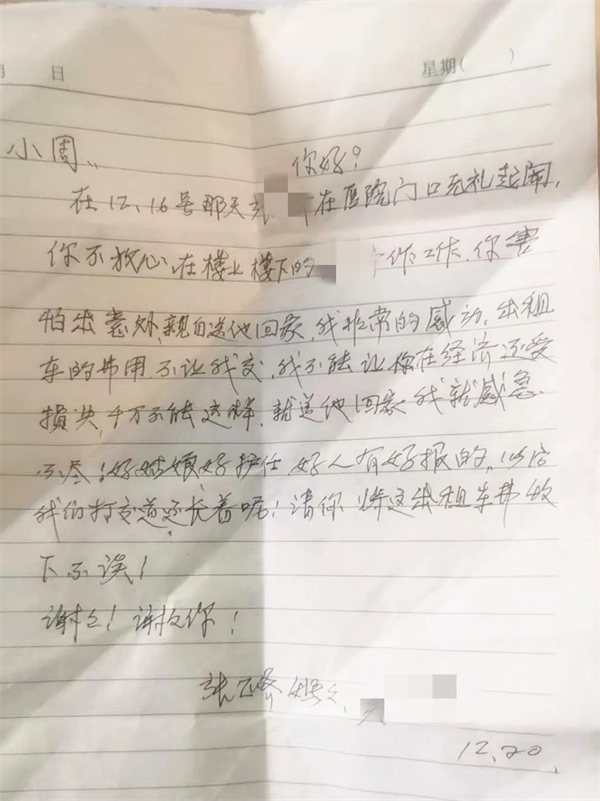 月 日 星期( )
小周、、 你好？
在12.16号那天 在医院门口无礼起闹，
你不放心在楼上楼下的 作工作.你害
怕出意外，亲自送他回家，我非常的感动.出租
车的费用.不让我交，我不能让你在经济还受
损失，千万不能这样.就送他回家我就感急
不尽！好姑娘，好护士.好人有好报的，以后
我们打交道还长着呢！请你将这出租车费收
下不误！
谢谢！谢谢你！
张 妈妈、
12.20.